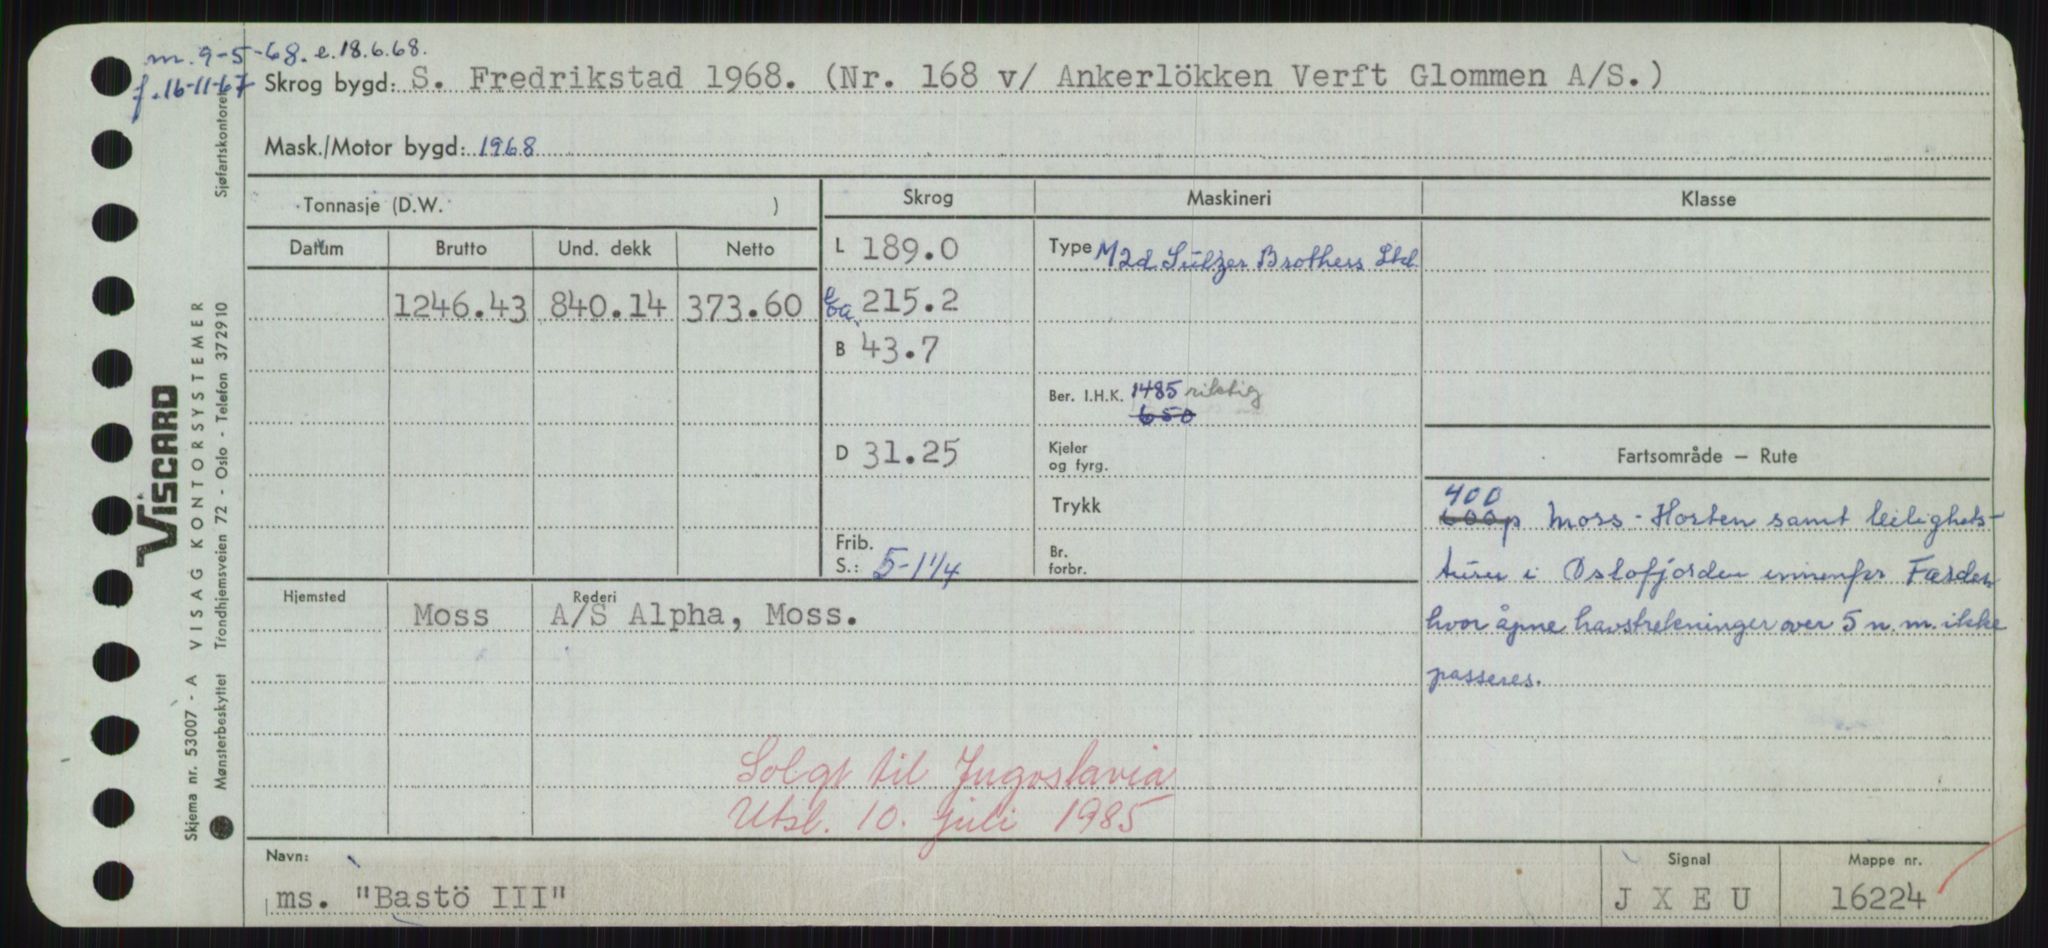 m. 9-5-68. e. 18.6.68.
f. 16-11-67
Skrog bygd: S. Fredrikstad 1968. (Nr. 168 v/ Ankerlökken Verft Glommen A/S.)
Mask./Motor bygd: 1968
Tonnasje (D.W. )
Skrog
Maskineri
Klasse
Datum Brutto Und. dekk Netto
1246.43 840.14 373.60
L 189.0
215.2
B 43.7
D 31.25
Frib.
S.: 5-1 1/4
Type M2d Sulzer Brothers Ltd.
Ber. I.H.K. 1485 riktig
650
Kjeler
og fyrg.
Trykk
Br.
forbr.
Fartsområde – Rute
400
600 p Moss - Horten samt leilighets-
turer i Oslofjorden innenfor Færder
hvor åpne havstrekninger over 5 n.m. ikke
passeres.
Hjemsted Moss
Rederi
A/S Alpha, Moss.
Solgt til Jugoslavia
Utsl. 10. juli 1985
Navn:
ms. "Bastö III"
Signal
J X E U
Mappe nr.
16224
Sjøfartskontoret
VISCARD
VISAG KONTORSYSTEMER
Trondhjemsveien 72 - Oslo - Telefon 372910
Skjema nr. 53007 - A
Mønsterbeskyttet